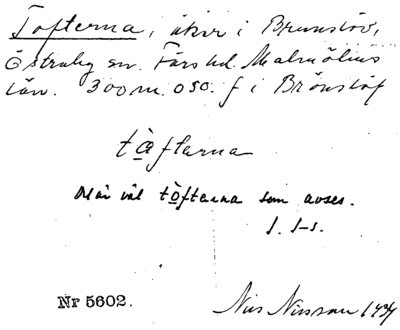 Tofterna, åker i Brunslöv,
Östraby sn. Färs hd. Malmöhus
län. 300 m. oso. f i Brönslöf
tòfterna
Må väl tòfterna som avses.
I. I-s.
Nr 5602.
Nils Nilsson 1934